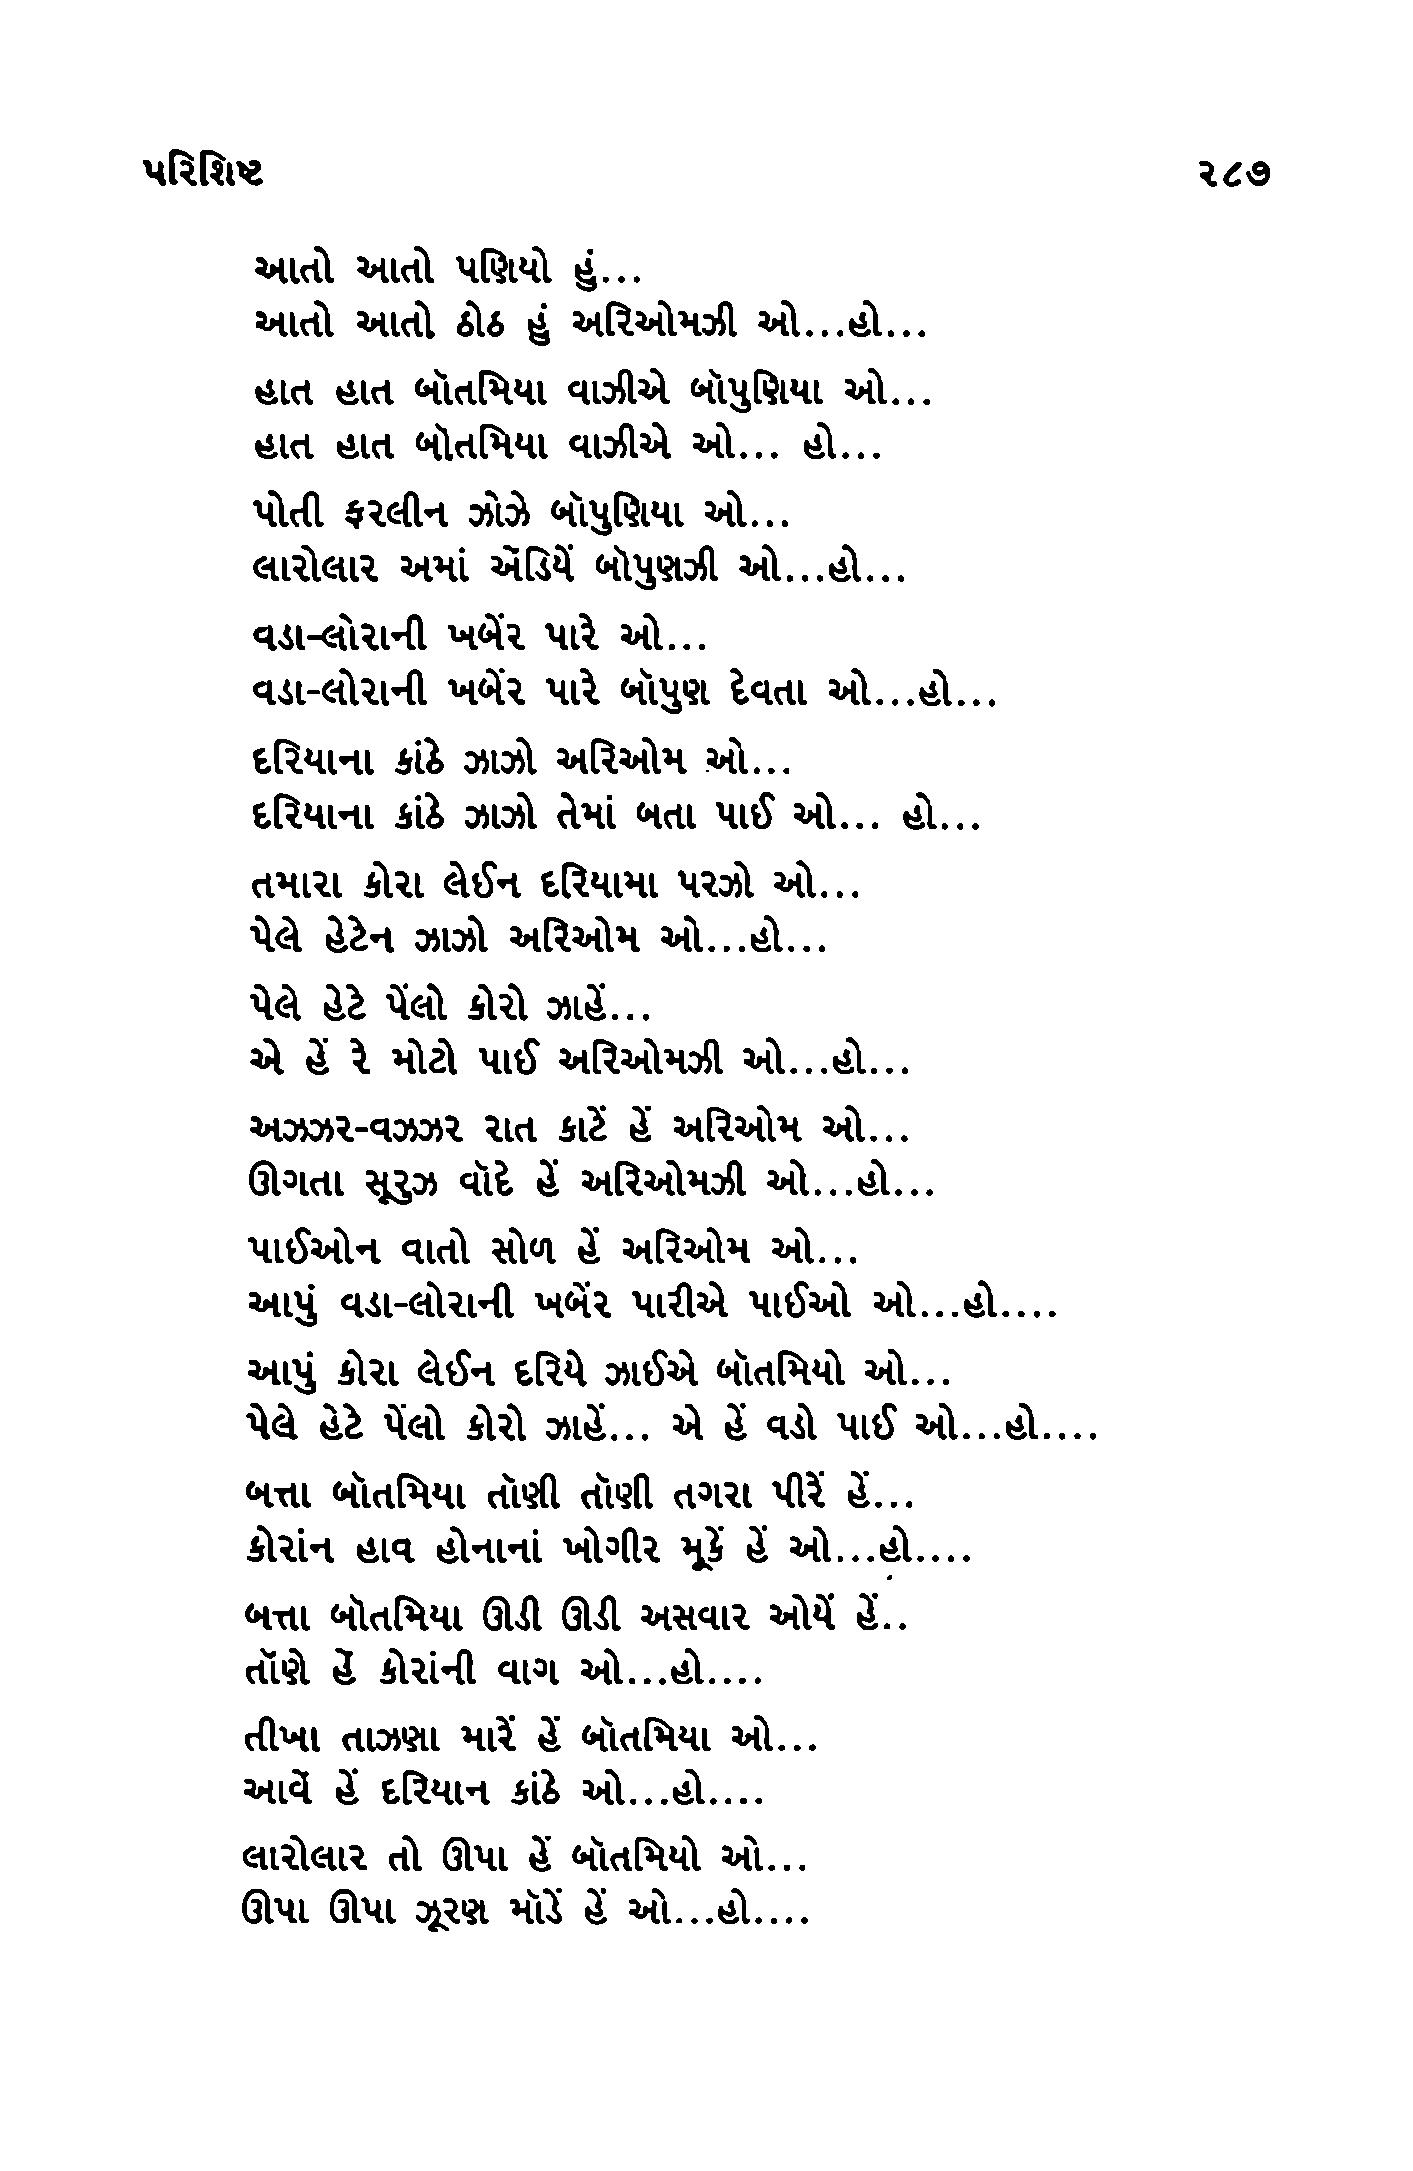 પરિશિષ્ટ ૨૮૭
આતો આતો પણિયો હું...
આતો આતો ઠોઠ હું અરિઓમઝી ઓ...હો...
હાત હાત બૉતમિયા વાઝીએ બૉપુણિયા ઓ...
હાત હાત બૉતમિયા વાઝીએ ઓ... હો...
પોતી ફરલીન ઝોઝે બૉપુણિયા ઓ...
લારોલાર અમાં ઍંડિયેં બૉપુણઝી ઓ...હો...
વડા-લોરાની ખબેંર પારે ઓ...
વડા-લોરાની ખબેંર પારે બૉપુણ દેવતા ઓ...હો...
દરિયાના કાંઠે ઝાઝો અરિઓમ ઓ...
દરિયાના કાંઠે ઝાઝો તેમાં બતા પાઈ ઓ... હો...
તમારા કોરા લેઈન દરિયામા પરઝો ઓ...
પેલે હેટેન ઝાઝો અરિઓમ ઓ...હો...
પેલે હેટે પેંલો કોરો ઝાહેં...
એ હેં રે મોટો પાઈ અરિઓમઝી ઓ...હો...
અઝ્ઝર-વઝ્ઝર રાત કાટેં હેં અરિઓમ ઓ...
ઊગતા સૂરુઝ વૉદે હેં અરિઓમઝી ઓ...હો...
પાઈઓન વાતો સોળ હેં અરિઓમ ઓ...
આપું વડા-લોરાની ખબેંર પારીએ પાઈઓ ઓ...હો....
આપું કોરા લેઈન દરિયે ઝાઈએ બૉતમિયો ઓ...
પેલે હેટે પેંલો કોરો ઝાહેં... એ હેં વડો પાઈ ઓ...હો....
બત્તા બૉતમિયા તૉણી તૉણી તગરા પીરેં હેં...
કોરાંન હાવ હોનાનાં ખોગીર મૂકેં હેં ઓ...હો....
બત્તા બૉતમિયા ઊડી ઊડી અસવાર ઓયેં હેં..
તૉણે હેં કોરાંની વાગ ઓ...હો....
તીખા તાઝણા મારેં હેં બૉતમિયા ઓ...
આવેં હેં દરિયાન કાંઠે ઓ...હો....
લારોલાર તો ઊપા હેં બૉતમિયો ઓ...
ઊપા ઊપા ઝૂરણ મૉડેં હેં ઓ...હો....